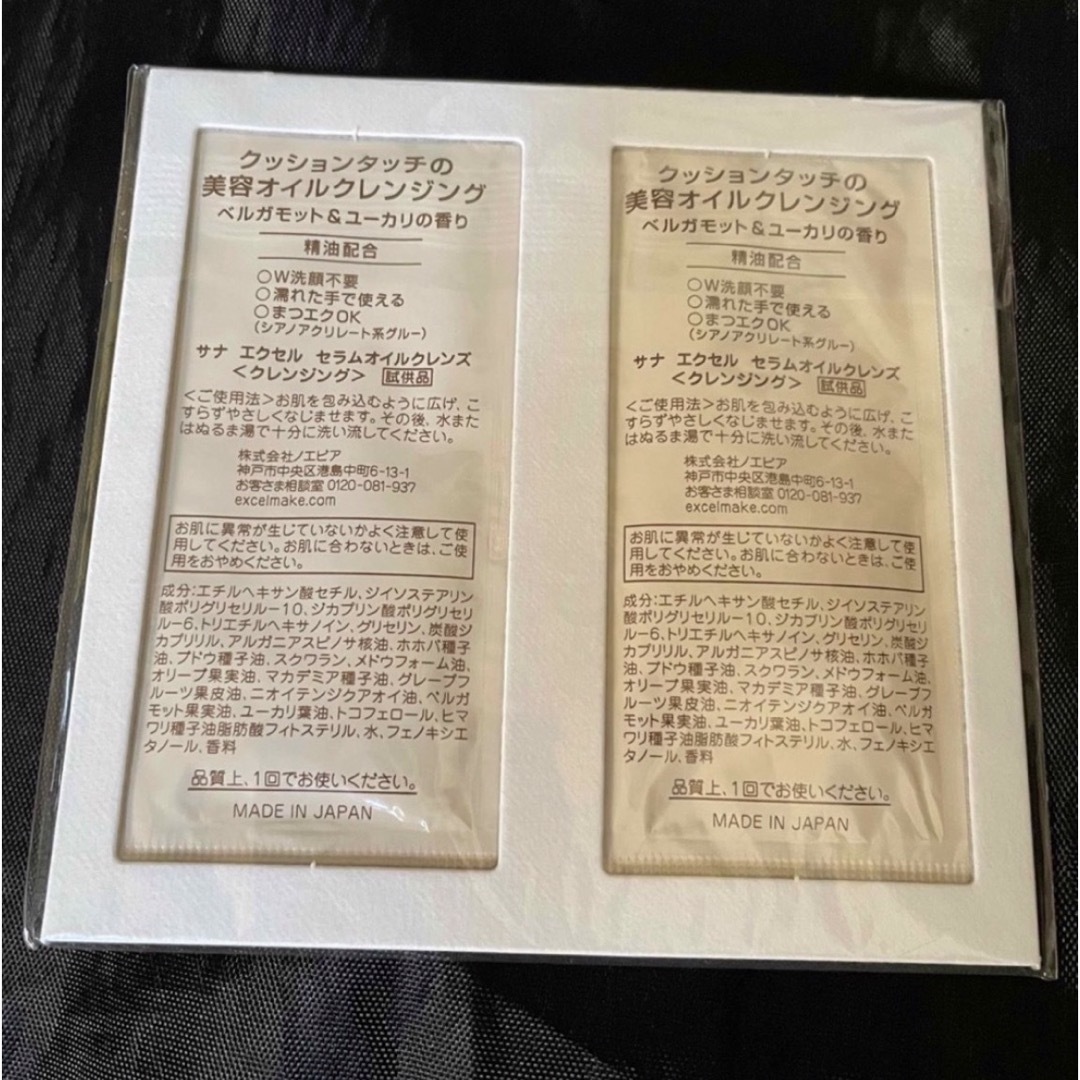 クッションタッチの
美容オイルクレンジング
ベルガモット&ユーカリの香り
精油配合
○W洗顔不要
○濡れた手で使える
○まつエクOK
(シアノアクリレート系グルー)
サナ エクセル セラムオイルクレンズ
<クレンジング> 試供品
<ご使用法>お肌を包み込むように広げ、こ
すらずやさしくなじませます。その後、水また
はぬるま湯で十分に洗い流してください。
株式会社ノエビア
神戸市中央区港島中町6-13-1
お客さま相談室 0120-081-937
excelmake.com
お肌に異常が生じていないかよく注意して使
用してください。お肌に合わないときは、ご使
用をおやめください。
成分:エチルヘキサン酸セチル、ジイソステアリン
酸ポリグリセリル-10、ジカプリン酸ポリグリセリ
ル-6、トリエチルヘキサノイン、グリセリン、炭酸ジ
カプリリル、アルガニアスピノサ核油、ホホバ種子
油、ブドウ種子油、スクワラン、メドウフォーム油、
オリーブ果実油、マカデミア種子油、グレープフ
ルーツ果皮油、ニオイテンジクアオイ油、ベルガ
モット果実油、ユーカリ葉油、トコフェロール、ヒマ
ワリ種子油脂肪酸フィトステリル、水、フェノキシエ
タノール、香料
品質上、1回でお使いください。
MADE IN JAPAN
クッションタッチの
美容オイルクレンジング
ベルガモット&ユーカリの香り
精油配合
○W洗顔不要
○濡れた手で使える
○まつエクOK
(シアノアクリレート系グルー)
サナ エクセル セラムオイルクレンズ
<クレンジング> 試供品
<ご使用法>お肌を包み込むように広げ、こ
すらずやさしくなじませます。その後、水また
はぬるま湯で十分に洗い流してください。
株式会社ノエビア
神戸市中央区港島中町6-13-1
お客さま相談室 0120-081-937
excelmake.com
お肌に異常が生じていないかよく注意して使
用してください。お肌に合わないときは、ご使
用をおやめください。
成分:エチルヘキサン酸セチル、ジイソステアリン
酸ポリグリセリル-10、ジカプリン酸ポリグリセリ
ル-6、トリエチルヘキサノイン、グリセリン、炭酸ジ
カプリリル、アルガニアスピノサ核油、ホホバ種子
油、ブドウ種子油、スクワラン、メドウフォーム油、
オリーブ果実油、マカデミア種子油、グレープフ
ルーツ果皮油、ニオイテンジクアオイ油、ベルガ
モット果実油、ユーカリ葉油、トコフェロール、ヒマ
ワリ種子油脂肪酸フィトステリル、水、フェノキシエ
タノール、香料
品質上、1回でお使いください。
MADE IN JAPAN